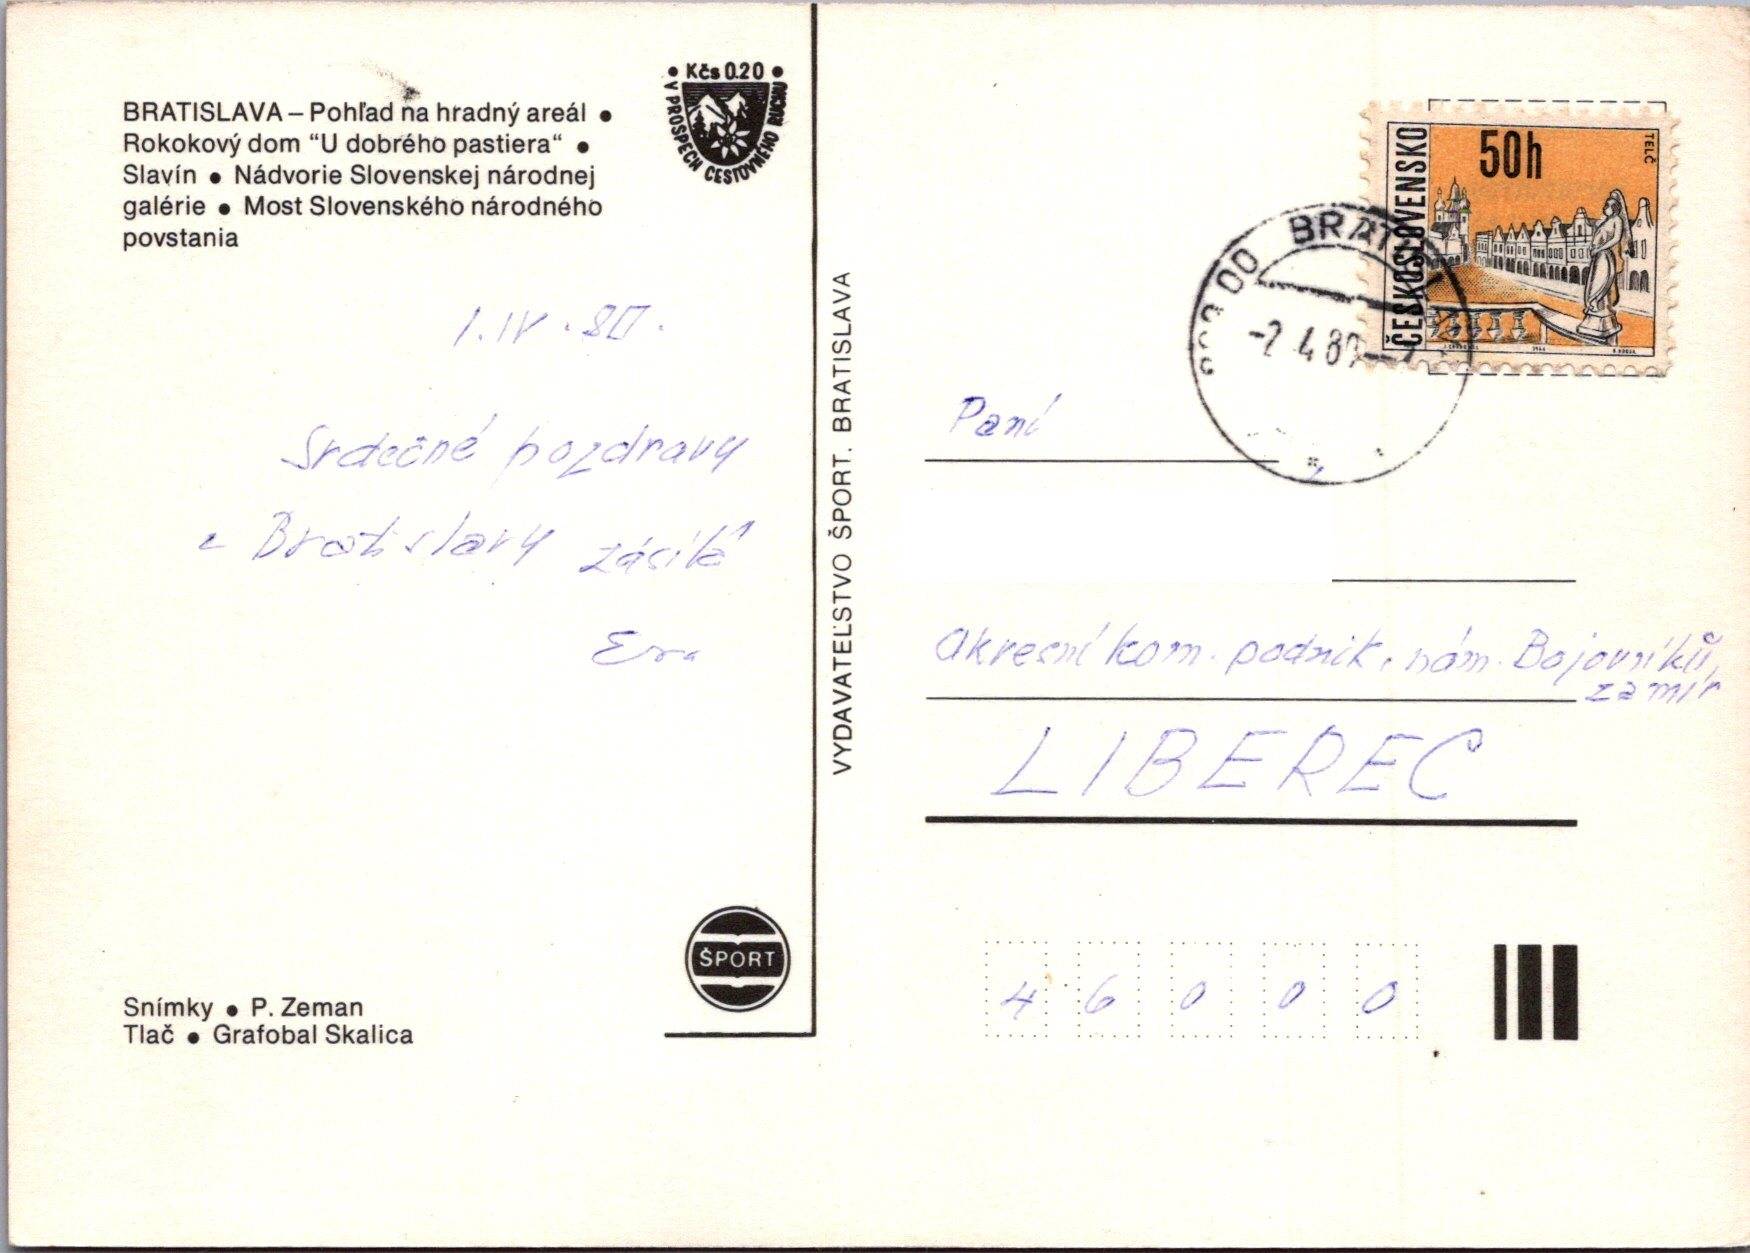 BRATISLAVA – Pohľad na hradný areál ●
Rokokový dom "U dobrého pastiera" ●
Slavín ● Nádvorie Slovenskej národnej
galérie ● Most Slovenského národného
povstania
● Kčs 0.20 ●
V PROSPECH CESTOVNÉHO RUCHU
1.IV.80.
Srdečné pozdravy
z Bratislavy zásílá
Eva
ŠPORT
Snímky ● P. Zeman
Tlač ● Grafobal Skalica
VYDAVATEĽSTVO ŠPORT. BRATISLAVA
ČESKOSLOVENSKO
50h
TELČ
-2.4.80
Paní
Okresní kom. podnik, nám. Bojovníků
za mír
LIBEREC
46000